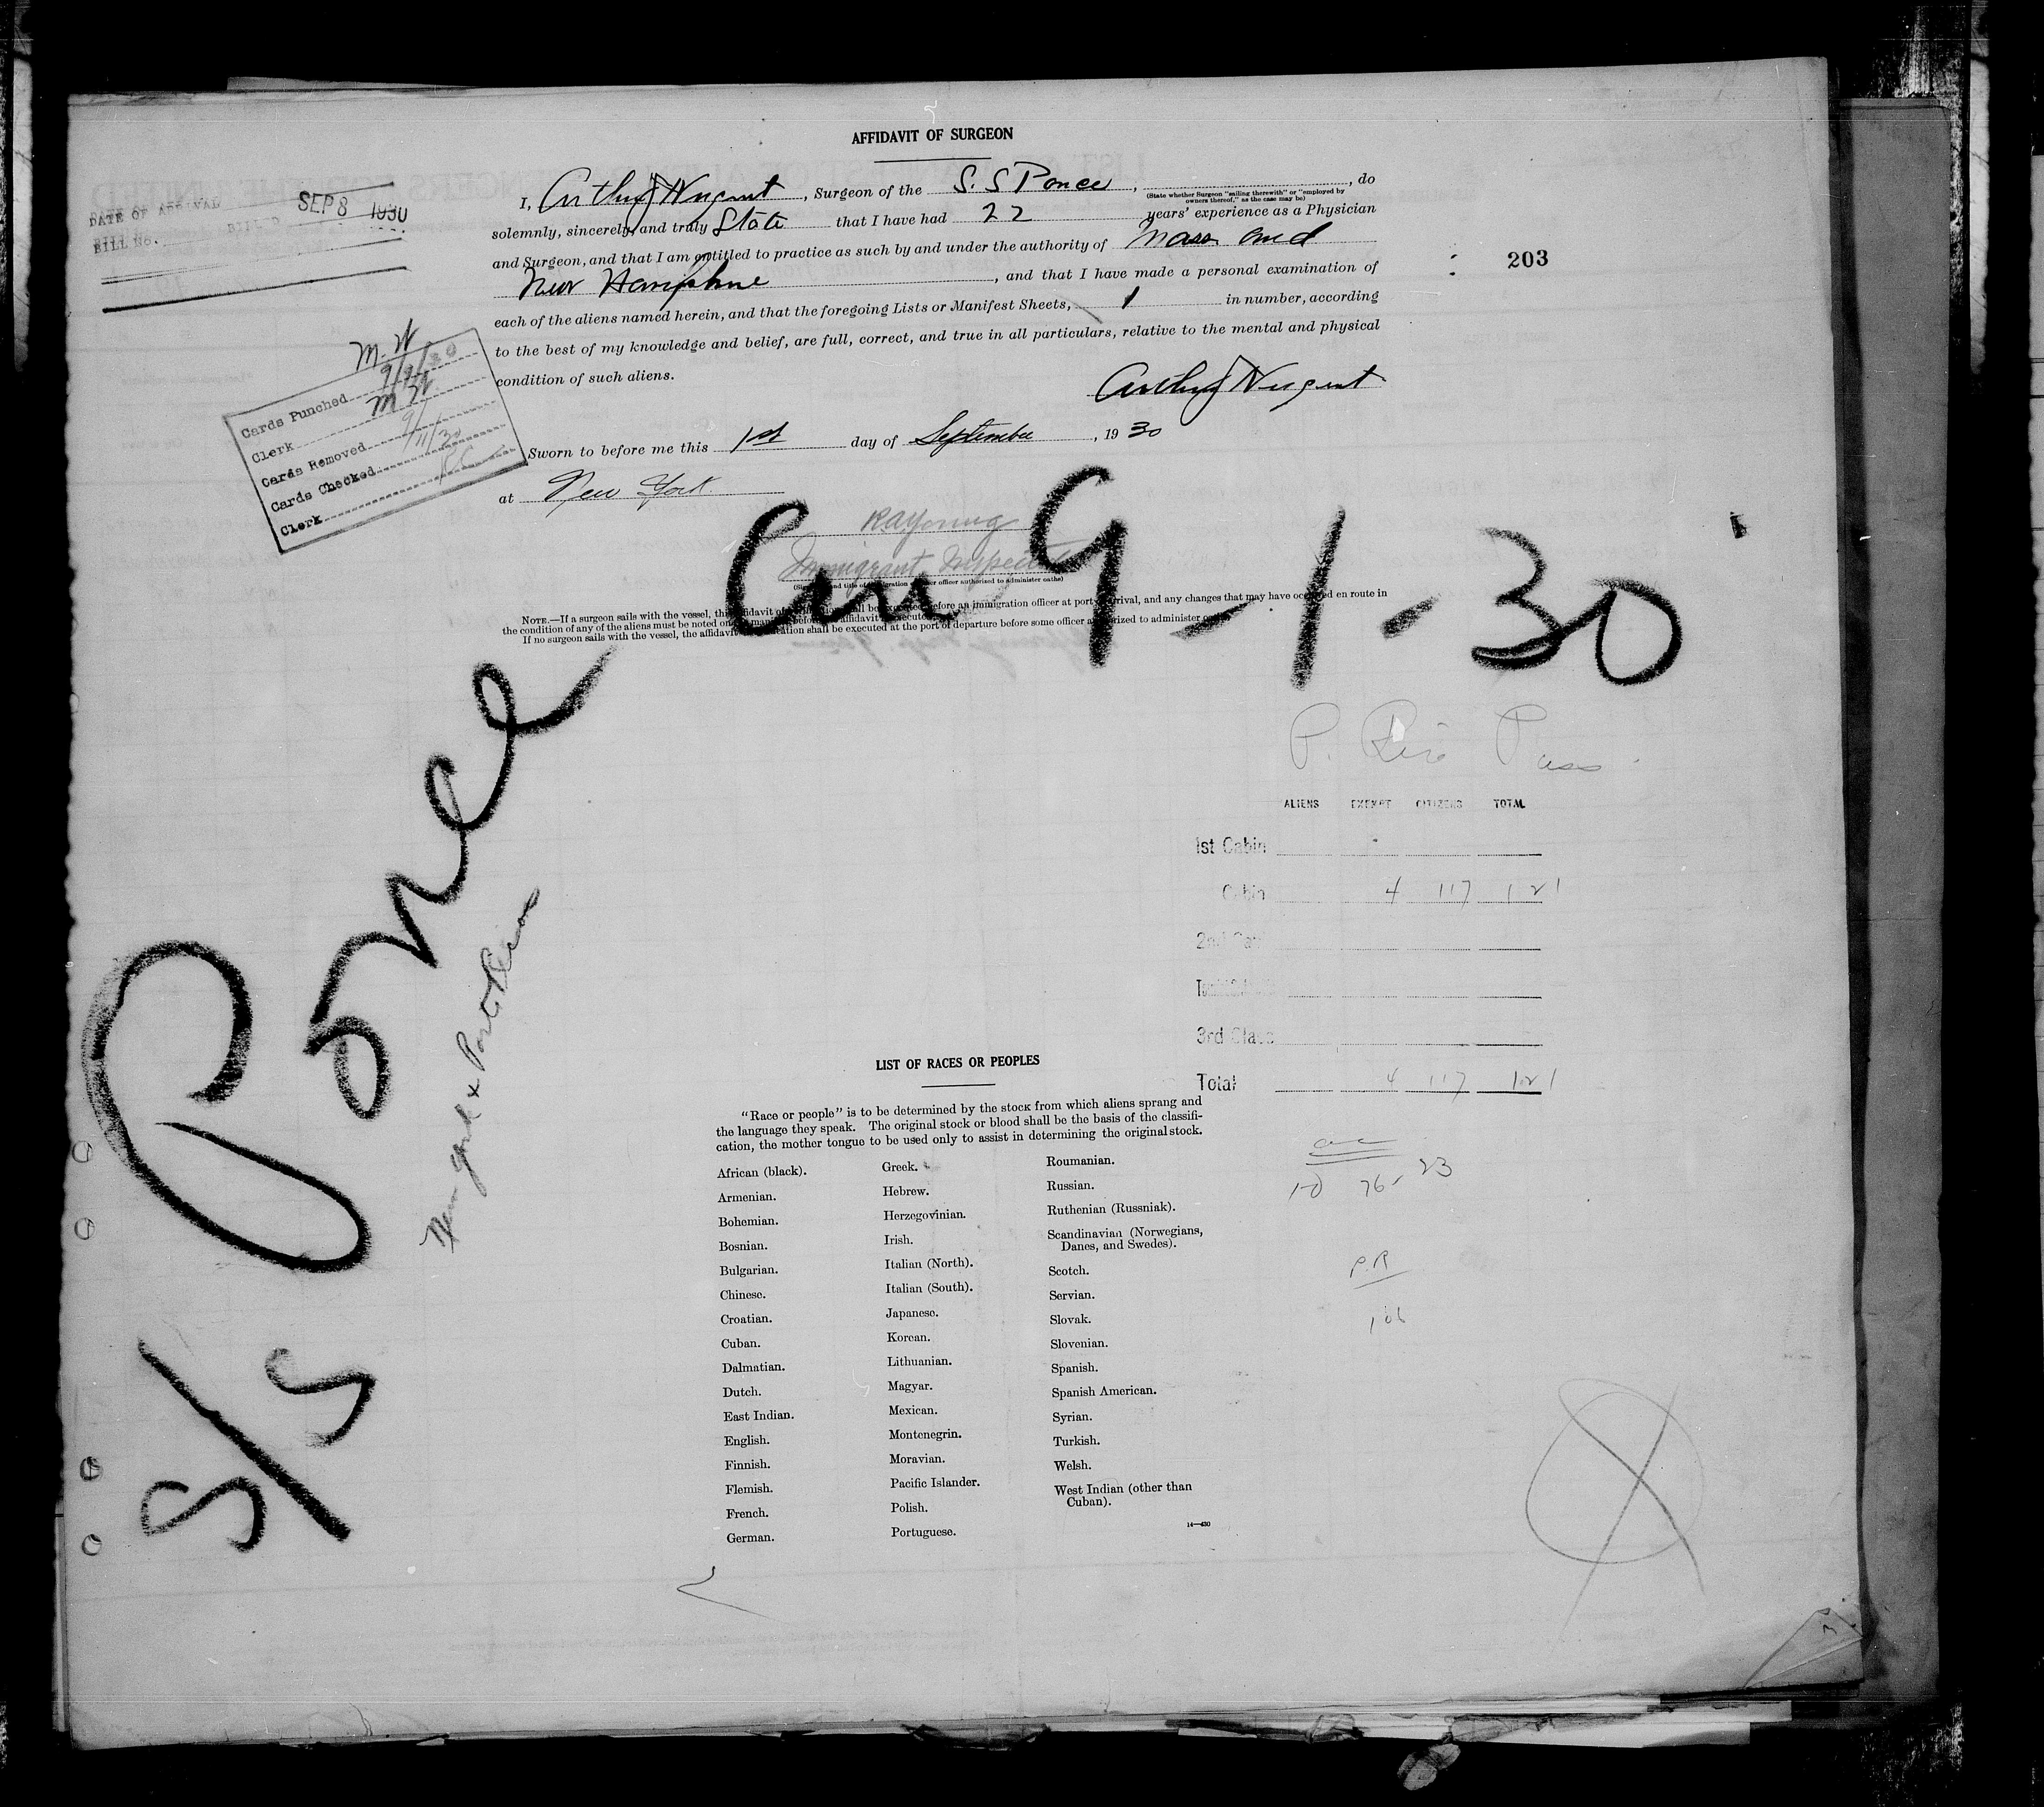 AFFIDAVIT OF SURGEON
I, Arthur J Nugent, Surgeon of the S. S Ponce, , do
(State whether Surgeon "sailing therewith" or "employed by
owners thereof," as the case may be)
solemnly, sincerely, and truly State that I have had 22 years' experience as a Physician
and Surgeon, and that I am entitled to practice as such by and under the authority of Mass and
New Hampshire, and that I have made a personal examination of
each of the aliens named herein, and that the foregoing Lists or Manifest Sheets, 1 in number, according
to the best of my knowledge and belief, are full, correct, and true in all particulars, relative to the mental and physical
condition of such aliens.
Arthur J Nugent
Sworn to before me this 1st day of September, 1930
at New York
RA Young
Immigrant Inspector
NOTE.—If a surgeon sails with the vessel, this affidavit shall be executed before an immigration officer at port arrival, and any changes that may have occurred en route in
the condition of any of the aliens must be noted on manifest before affidavit executed
If no surgeon sails with the vessel, the affidavit shall be executed at the port of departure before some officer authorized to administer oaths
DATE OF ARRIVAL SEP 8 1930
BILL NO.
203
M.W
9/9/30
Cards Punched
Clerk M W
Cards Removed 9/11/30
Cards Checked
Clerk
Arr 9-1-30
S/S Ponce
New York & Porto Rican
P. Rico Pass
ALIENS EXEMPT CITIZENS TOTAL
1st Cabin
Cabin 4 117 121
2nd Cab
3rd Class
Total 4 117 121
76 23
P.R
106
LIST OF RACES OR PEOPLES
"Race or people" is to be determined by the stock from which aliens sprang and
the language they speak. The original stock or blood shall be the basis of the classifi-
cation, the mother tongue to be used only to assist in determining the original stock.
African (black).
Armenian.
Bohemian.
Bosnian.
Bulgarian.
Chinese.
Croatian.
Cuban.
Dalmatian.
Dutch.
East Indian.
English.
Finnish.
Flemish.
French.
German.
Greek.
Hebrew.
Herzegovinian.
Irish.
Italian (North).
Italian (South).
Japanese.
Korean.
Lithuanian.
Magyar.
Mexican.
Montenegrin.
Moravian.
Pacific Islander.
Polish.
Portuguese.
Roumanian.
Russian.
Ruthenian (Russniak).
Scandinavian (Norwegians,
Danes, and Swedes).
Scotch.
Servian.
Slovak.
Slovenian.
Spanish.
Spanish American.
Syrian.
Turkish.
Welsh.
West Indian (other than
Cuban).
14—430